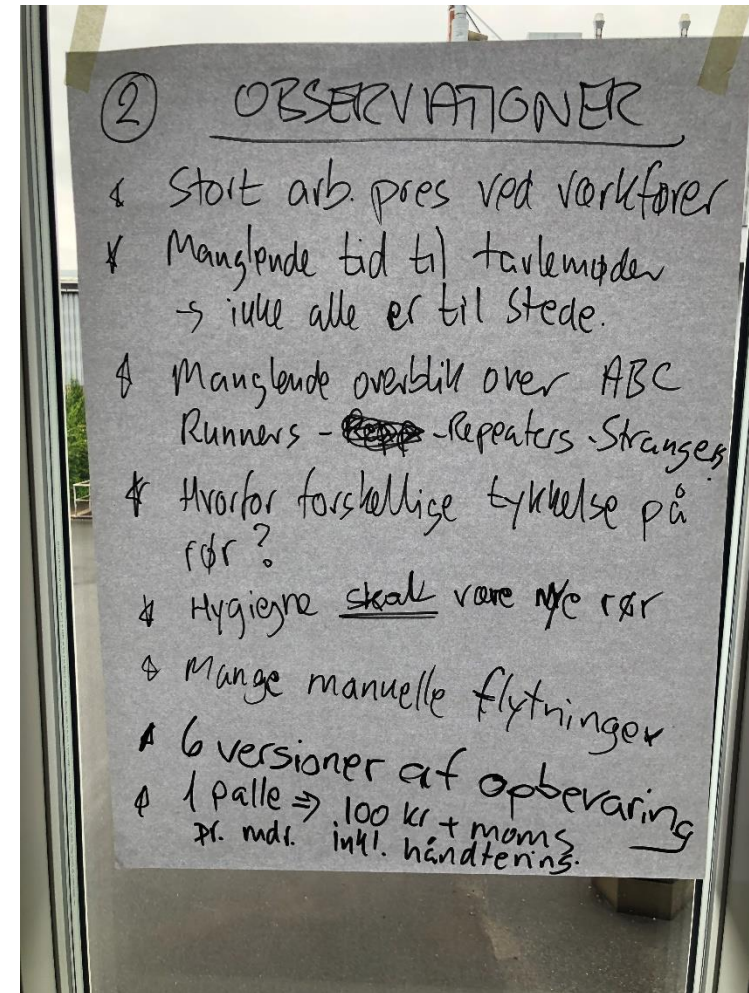 ② OBSERVATIONER
* Stort arb. pres ved værkfører
* Manglende tid til tavlemøder
→ ikke alle er til stede.
* Manglende overblik over ABC
Runners - - Repeaters - Strangers
* Hvorfor forskellige tykkelse på
rør?
* Hygiejne skal være nye rør
* Mange manuelle flytninger
* 6 versioner af opbevaring
* 1 palle ⇒ 100 kr + moms
pr. mdr. inkl. håndtering.